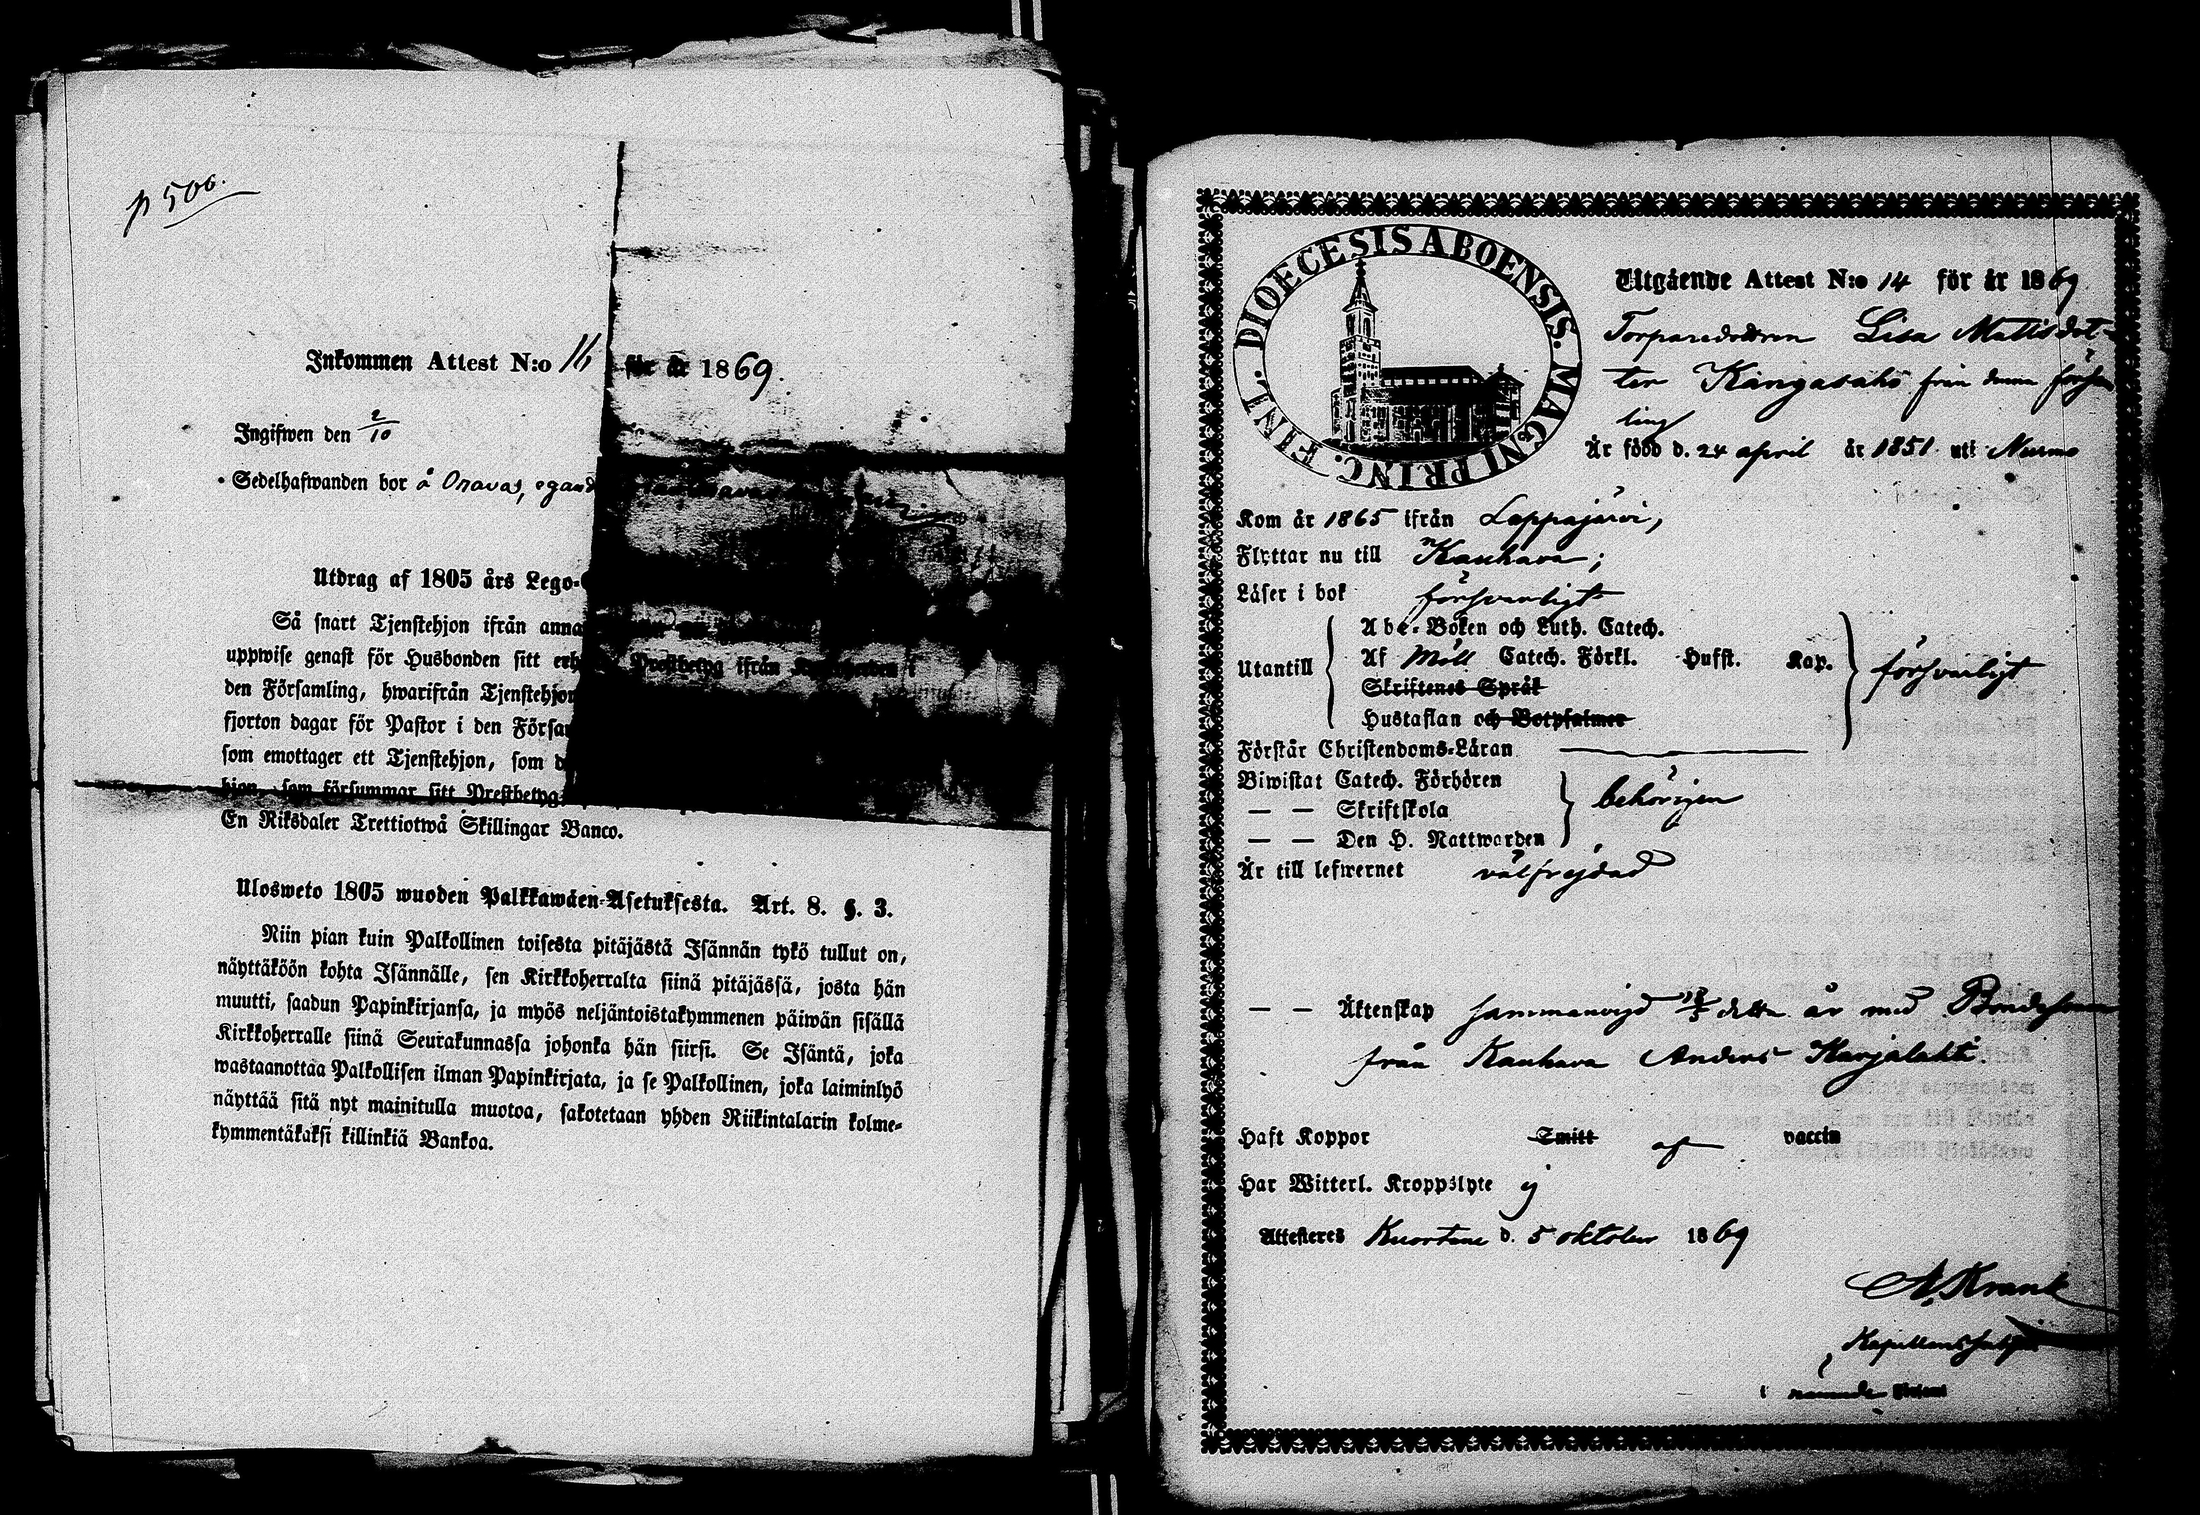 p 506.
Inkommen Attest N:o 16 för år 1869.
Ingifwen den 2/10
Sedelhafwanden bor å Oravas, egand
Utdrag af 1805 års Lego-
Så snart Tjenstehjon ifrån anna
uppwise genast för Husbonden sitt erh Prestbetyg ifrån Kyrkoherden i
den Församling, hwarifrån Tjenstehjon
fjorton dagar för Pastor i den Försam
som emottager ett Tjenstehjon, som d
hjon, som försummar sitt Prestbetyg
En Riksdaler Trettiotwå Skillingar Banco.
Ulosweto 1805 wuoden Palkkawäen-Asetuksesta. Art. 8. §. 3.
Niin pian kuin Palkollinen toisesta pitäjästä Isännän tykö tullut on,
näyttäköön kohta Isännälle, sen Kirkkoherralta siinä pitäjässä, josta hän
muutti, saadun Papinkirjansa, ja myös neljäntoistakymmenen päiwän sisällä
Kirkkoherralle siinä Seurakunnassa johonka hän siirsi. Se Isäntä, joka
wastaanottaa Palkollisen ilman Papinkirjata, ja se Palkollinen, joka laiminlyö
näyttää sitä nyt mainitulla muotoa, sakotetaan yhden Riikintalarin kolme-
kymmentäkaksi killinkiä Bankoa.
DIOECESIS ABOENSIS. MAGNI PRINC. FINL.
Utgående Attest N:o 14 för år 1869
Torparedottren Lisa Mattsdot-
ter Kangasaho från denna försam
ling
Är född d. 24 april år 1851 uti Nurmo
Kom år 1865 ifrån Lappajärvi,
Flyttar nu till Kauhava;
Läser i bok försvarligt
Abc-Boken och Luth. Catech.
Utantill Af Möll Catech. Förkl. Hufst. Kap. försvarligt
Skriftenes Språk
Hustaflan och Botpsalmer
Förstår Christendoms-Läran
Biwistat Catech. Förhören
— — Skriftskola behörigen
— — Den H. Nattwarden
Är till lefwernet välfrejdad
— — Äktenskap sammanvigd detta år med Bondesonen
från Kauhava Anders Karjalahti.
Haft Koppor Smitt af vaccin
Har Witterl. Kroppslyte ej
Attesteres Kuortane d. 5 oktober 1869
A. Krank
Kapellans
i